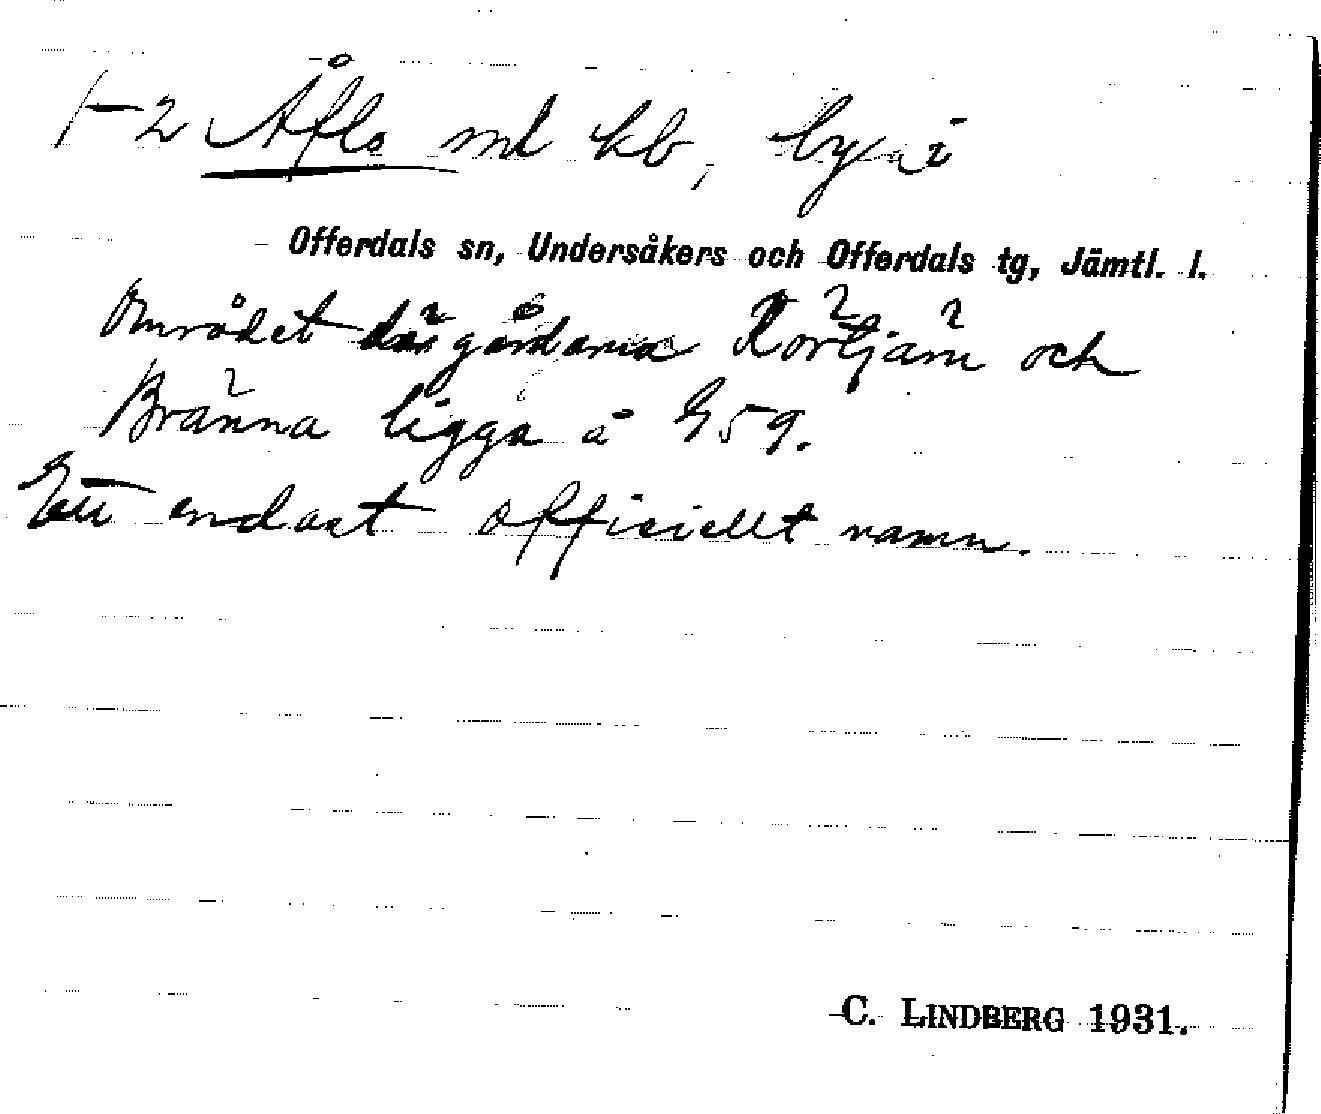 1-2 Åflo md kb, by i
Offerdals sn, Undersåkers och Offerdals tg, Jämtl. l.
Området där gårdarna Rörtjärn och
Bränna ligga å G59.
Ett endast officiellt namn.
C. LINDBERG 1931.